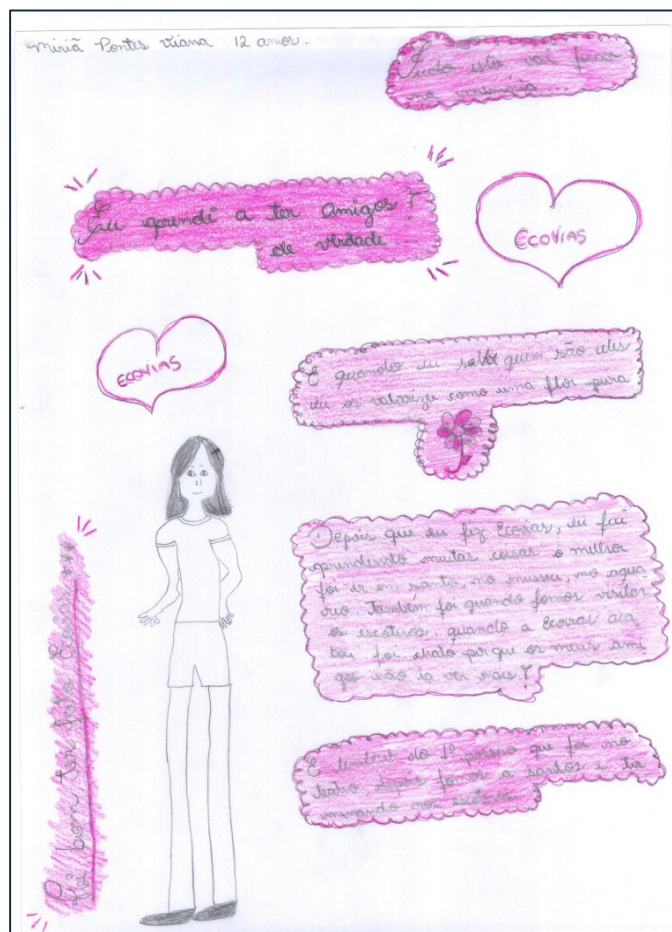 Miriã Pontes Viana 12 anos.
Tudo isto vai ficar
na memória...
Eu aprendi a ter amigos!
de verdade...
ECOVIAS
ECOVIAS
E quando eu sube quem são eles
eu os valorizei como uma flor pura
Depois que eu fiz Ecovias, eu fui
aprendendo muitas coisas o melhor
foi ir em santo, no musseu, no aqua
rio. Também foi quando fomos visitar
os escoteiros. quando a Ecovias aca
bou foi chato porque os meus ami
gos não ia ver mais!
E lembrei do 1º passeio que foi no
teatro depois fomos a santos e ter
minando nos escoteiros.
Foi bom ter feito Ecovias